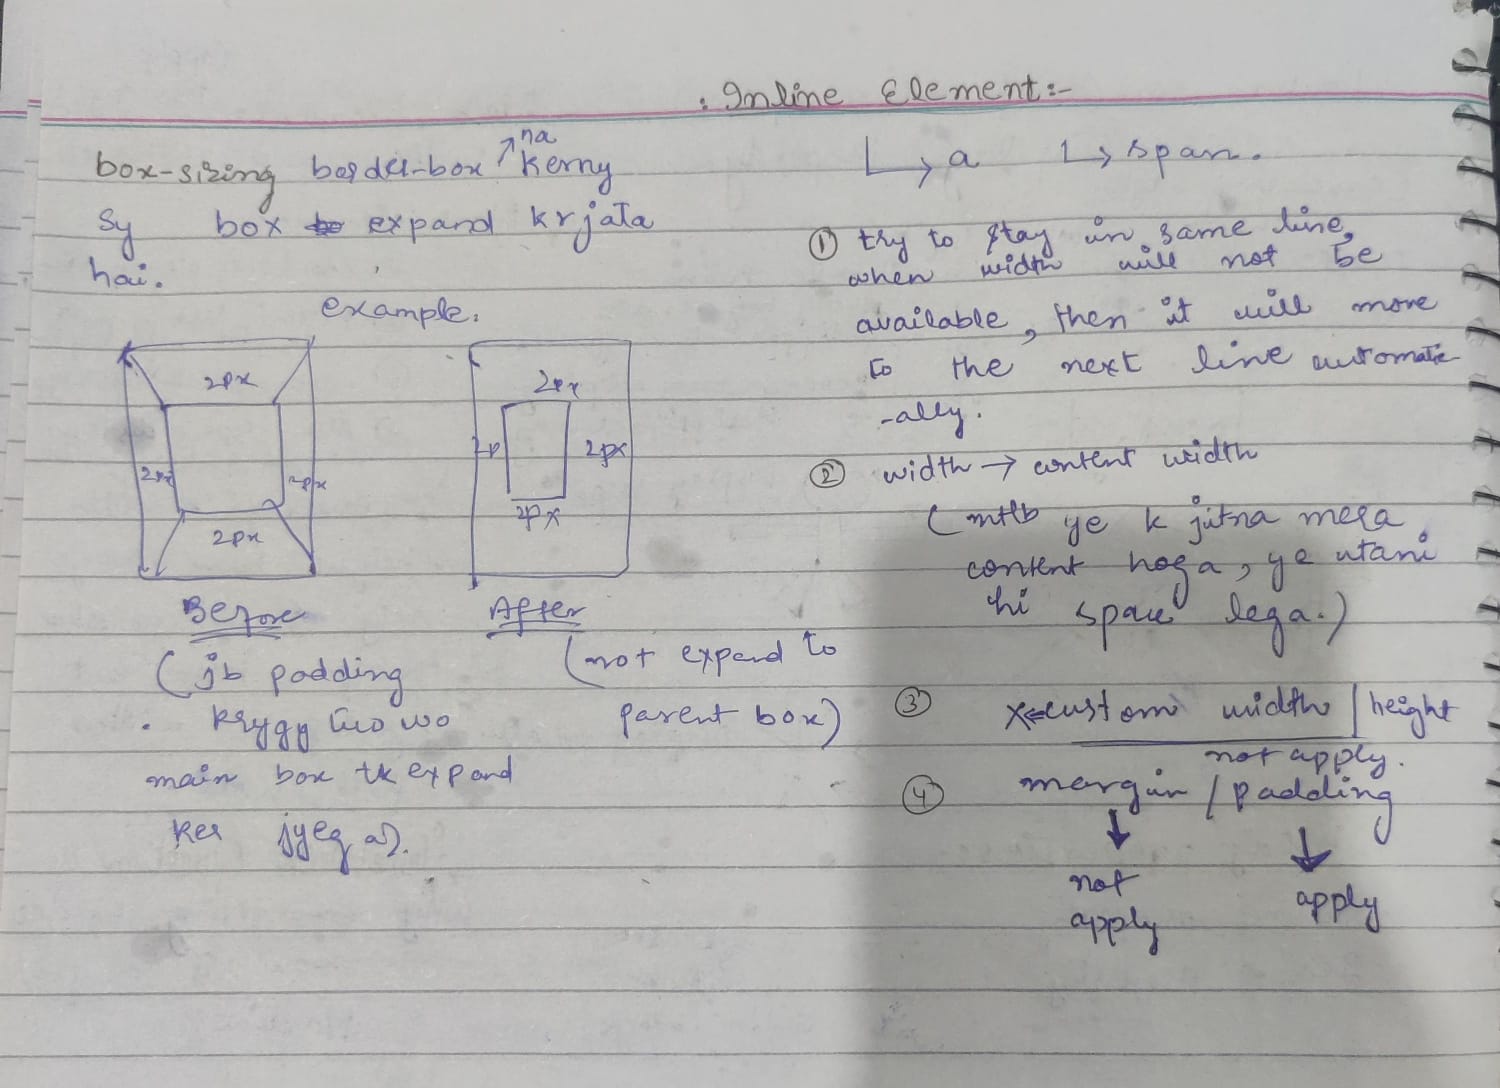 : Inline Element:-
box-sizing border-box na kerny
Sy box expand krjata
hai.
example:
2px
2px
2px
2px
Before
(jb padding
krygy two wo
main box tk expand
ker jyega).
2px
2p
2px
2px
After
(not expand to
parent box)
↳ a ↳ span.
① try to stay in same line,
when width will not be
available, then it will move
to the next line automatic
-ally.
② width → content width
(mtlb ye k jitna mera
content hoga, ye utani
hi space lega.)
③ x custom width / height
not apply.
④ margin / padding
↓ ↓
not apply
apply